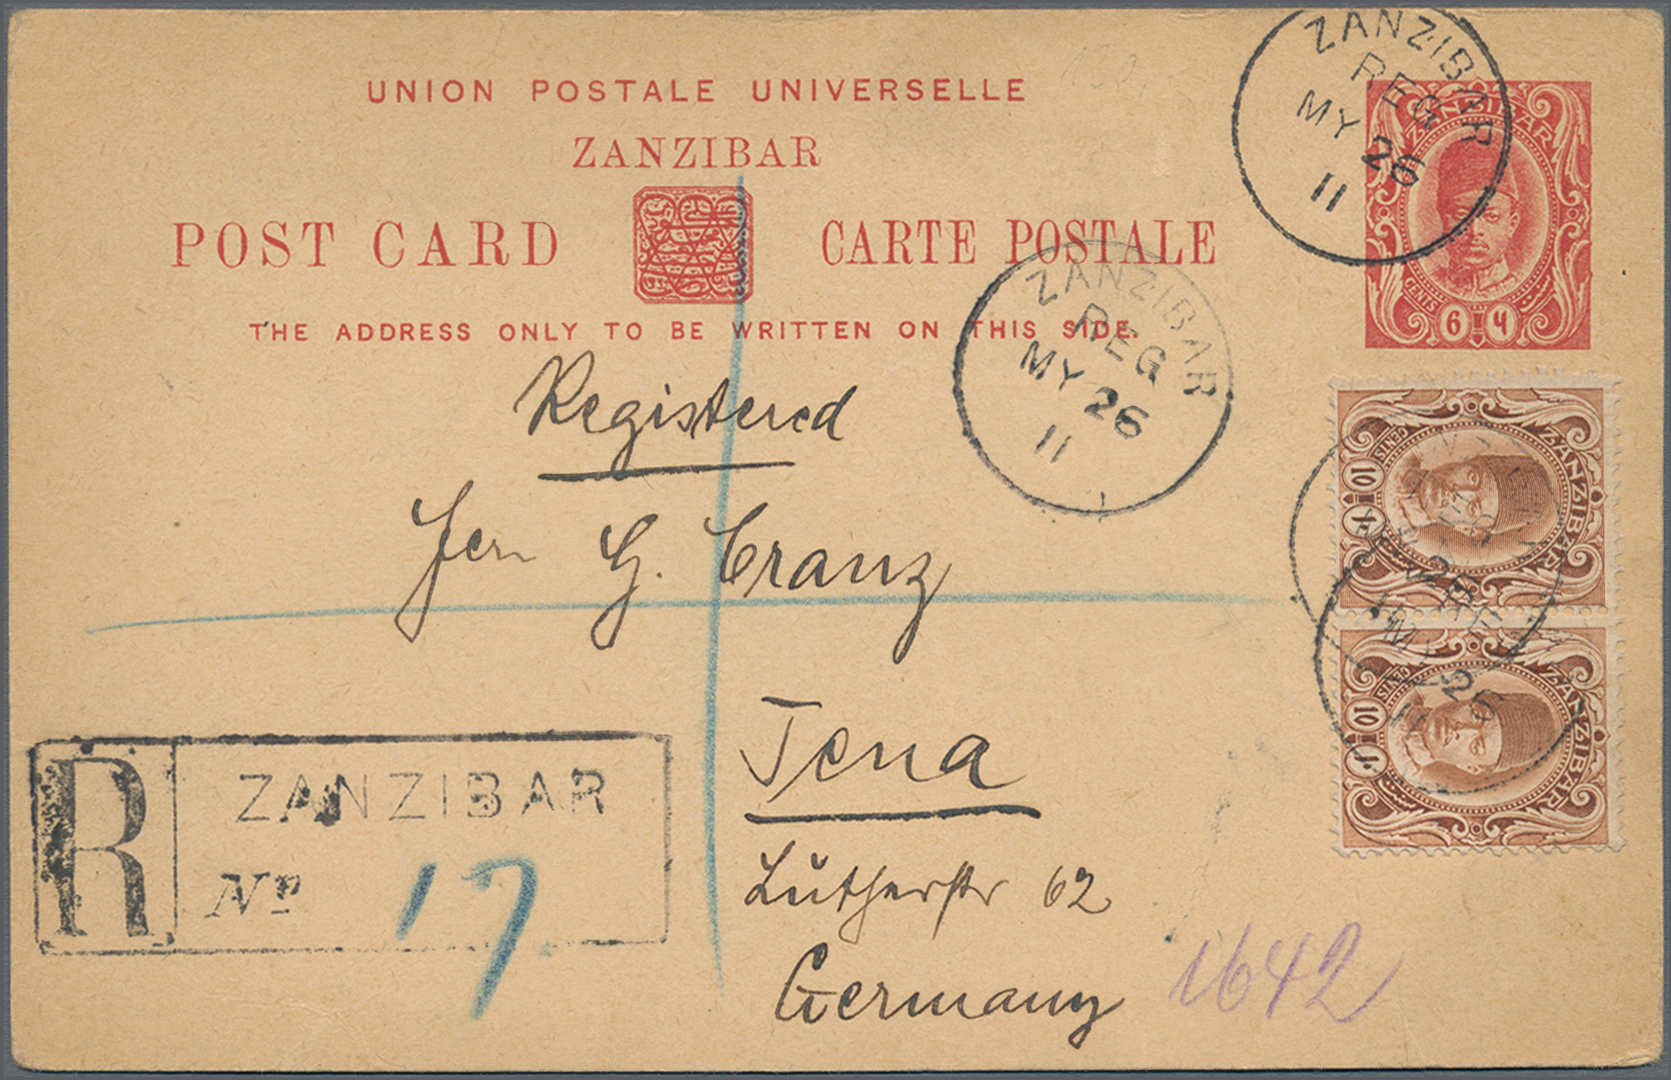 UNION POSTALE UNIVERSELLE
ZANZIBAR
POST CARD CARTE POSTALE
THE ADDRESS ONLY TO BE WRITTEN ON THIS SIDE.
ZANZIBAR
REG
MY 26
11
ZANZIBAR
CENTS
6 ٦
ZANZIBAR
REG
MY 26
11
Registered
Herrn G. Cranz
Jena
Lutherstr 62
Germany
1642
ZANZIBAR
CENTS
10 ١٠
ZANZIBAR
CENTS
10 ١٠
MY 26
11
R
ZANZIBAR
No
17